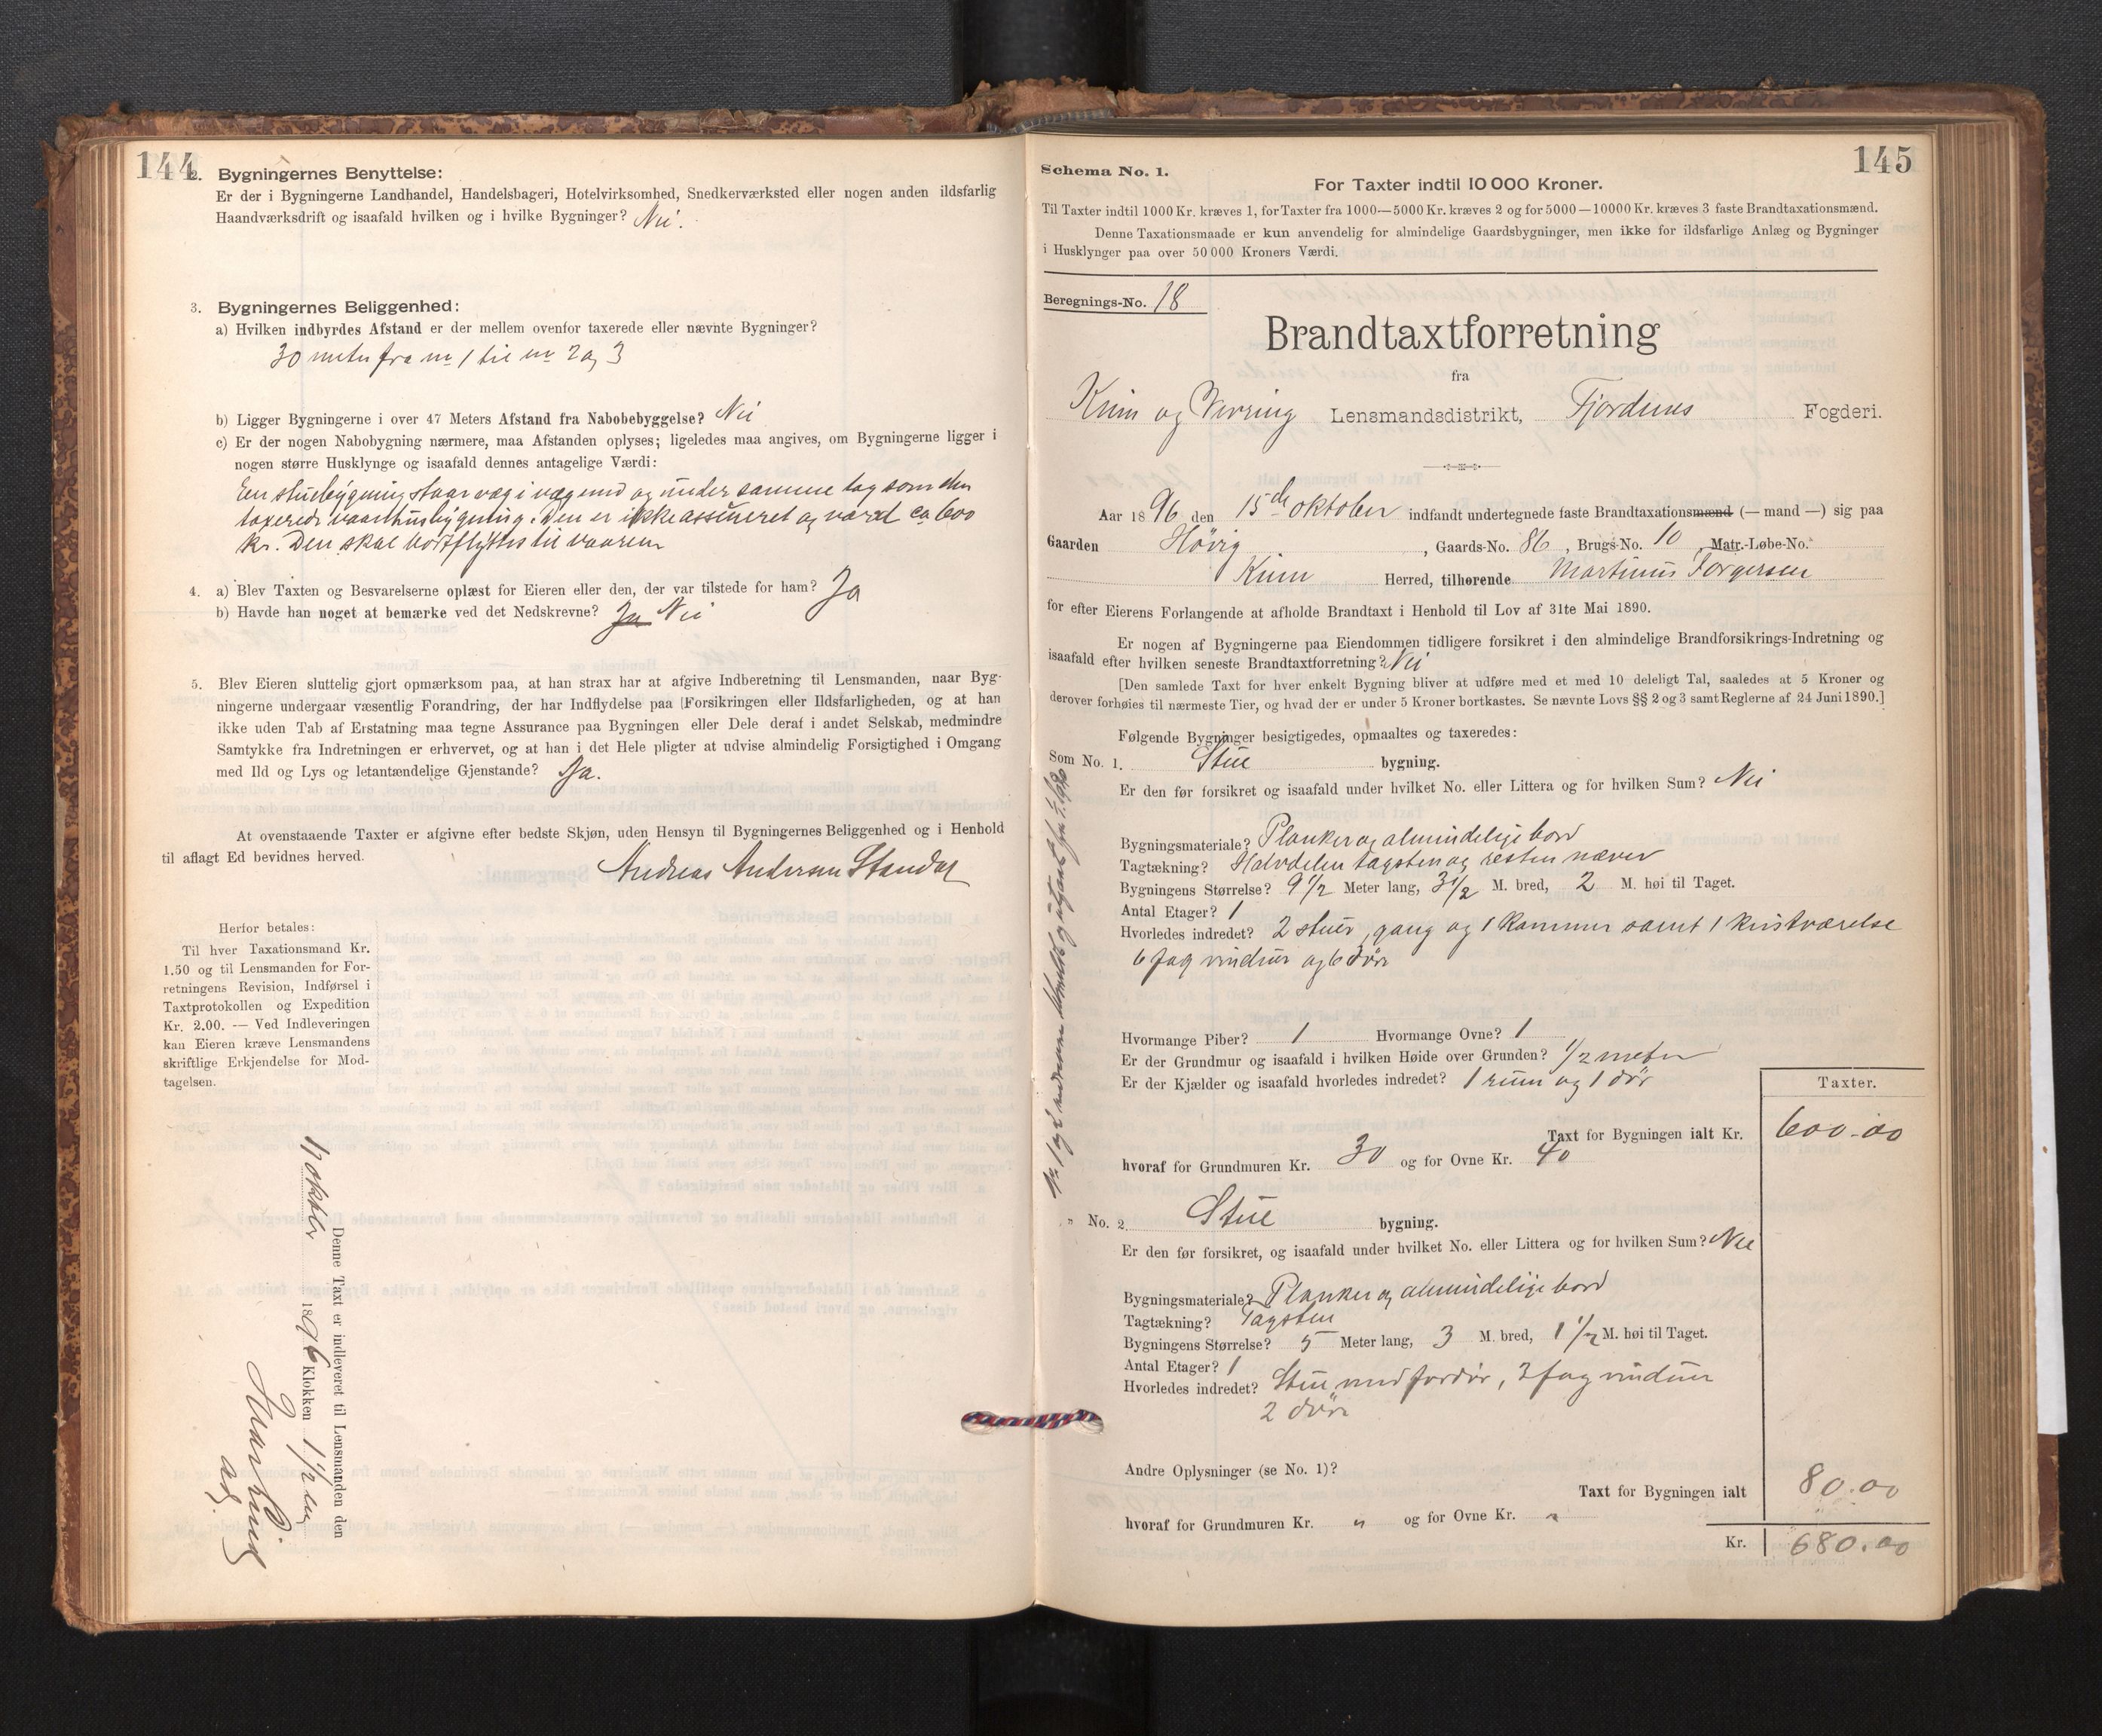 144
2. Bygningernes Benyttelse:
Er der i Bygningerne Landhandel, Handelsbageri, Hotelvirksomhed, Snedkerværksted eller nogen anden ildsfarlig
Haandværksdrift og isaafald hvilken og i hvilke Bygninger? Nei.
3. Bygningernes Beliggenhed:
a) Hvilken indbyrdes Afstand er der mellem ovenfor taxerede eller nævnte Bygninger?
30 meter fra no 1 til no 2 og 3
b) Ligger Bygningerne i over 47 Meters Afstand fra Nabobebyggelse? Nei
c) Er der nogen Nabobygning nærmere, maa Afstanden oplyses; ligeledes maa angives, om Bygningerne ligger i
nogen større Husklynge og isaafald dennes antagelige Værdi:
En stuebygning staar væg i væg med og under samme tag som den
taxerede vaanhusbygning. Den er ikke assureret og værd ca 600
kr. Den skal bortflyttes til vaaren
4. a) Blev Taxten og Besvarelserne oplæst for Eieren eller den, der var tilstede for ham? Ja
b) Havde han noget at bemærke ved det Nedskrevne? Ja Nei
5. Blev Eieren sluttelig gjort opmærksom paa, at han strax har at afgive Indberetning til Lensmanden, naar Byg-
ningerne undergaar væsentlig Forandring, der har Indflydelse paa [Forsikringen eller Ildsfarligheden, og at han
ikke uden Tab af Erstatning maa tegne Assurance paa Bygningen eller Dele deraf i andet Selskab, medmindre
Samtykke fra Indretningen er erhvervet, og at han i det Hele pligter at udvise almindelig Forsigtighed i Omgang
med Ild og Lys og letantændelige Gjenstande? Ja.
At ovenstaaende Taxter er afgivne efter bedste Skjøn, uden Hensyn til Bygningernes Beliggenhed og i Henhold
til aflagt Ed bevidnes herved.
Andreas Andersen Standal
Herfor betales:
Til hver Taxationsmand Kr.
1.50 og til Lensmanden for For-
retningens Revision, Indførsel i
Taxtprotokollen og Expedition
Kr. 2.00. — Ved Indleveringen
kan Eieren kræve Lensmandens
skriftlige Erkjendelse for Mod-
tagelsen.
Denne Taxt er indleveret til Lensmanden den
17 oktober 1896 Klokken 1 1/2 em
145
Schema No. 1.
For Taxter indtil 10 000 Kroner.
Til Taxter indtil 1000 Kr. kræves 1, for Taxter fra 1000—5000 Kr. kræves 2 og for 5000—10000 Kr. kræves 3 faste Brandtaxationsmænd.
Denne Taxationsmaade er kun anvendelig for almindelige Gaardsbygninger, men ikke for ildsfarlige Anlæg og Bygninger
i Husklynger paa over 50 000 Kroners Værdi.
Beregnings-No. 18
Brandtaxtforretning
fra
Kinn og Vevring Lensmandsdistrikt, Fjordenes Fogderi.
Aar 1896 den 15de oktober indfandt undertegnede faste Brandtaxationsmænd (— mand —) sig paa
Gaarden Høvig, Gaards-No. 86, Brugs-No. 10, Matr.-Løbe-No.
Kinn Herred, tilhørende Martinus Torgersen
for efter Eierens Forlangende at afholde Brandtaxt i Henhold til Lov af 31te Mai 1890.
Er nogen af Bygningerne paa Eiendommen tidligere forsikret i den almindelige Brandforsikrings-Indretning og
isaafald efter hvilken seneste Brandtaxtforretning? Nei
[Den samlede Taxt for hver enkelt Bygning bliver at udføre med et med 10 deleligt Tal, saaledes at 5 Kroner og
derover forhøies til nærmeste Tier, og hvad der er under 5 Kroner bortkastes. Se nævnte Lovs §§ 2 og 3 samt Reglerne af 24 Juni 1890.]
Følgende Bygninger besigtigedes, opmaaltes og taxeredes:
Som No. 1. Stue bygning.
Er den før forsikret og isaafald under hvilket No. eller Littera og for hvilken Sum? Nei
Bygningsmateriale? Planker og almindelige bord
Tagtækning? Halvdelen tagsten og resten næver
Bygningens Størrelse? 9 1/2 Meter lang, 3 1/2 M. bred, 2 M. høi til Taget.
Antal Etager? 1
Hvorledes indredet? 2 stuer, gang og 1 kammer samt 1 kvistværelse
6 fag vinduer og 6 døre
Hvormange Piber? 1 Hvormange Ovne? 1
Er der Grundmur og isaafald i hvilken Høide over Grunden? 1/2 meter
Er der Kjælder og isaafald hvorledes indredet? 1 rum og 1 dør
Taxter.
Taxt for Bygningen ialt Kr. 600.00
hvoraf for Grundmuren Kr. 30 og for Ovne Kr. 40
" No. 2 Stue bygning.
Er den før forsikret, og isaafald under hvilket No. eller Littera og for hvilken Sum? Nei
Bygningsmateriale? Planker og almindelige bord
Tagtækning? Tagsten
Bygningens Størrelse? 5 Meter lang, 3 M. bred, 1 1/2 M. høi til Taget.
Antal Etager? 1
Hvorledes indredet? Stue med fordør, 3 fag vinduer
2 døre
Andre Oplysninger (se No. 1)?
Taxt for Bygningen ialt 80.00
hvoraf for Grundmuren Kr. " og for Ovne Kr. "
Kr. 680.00